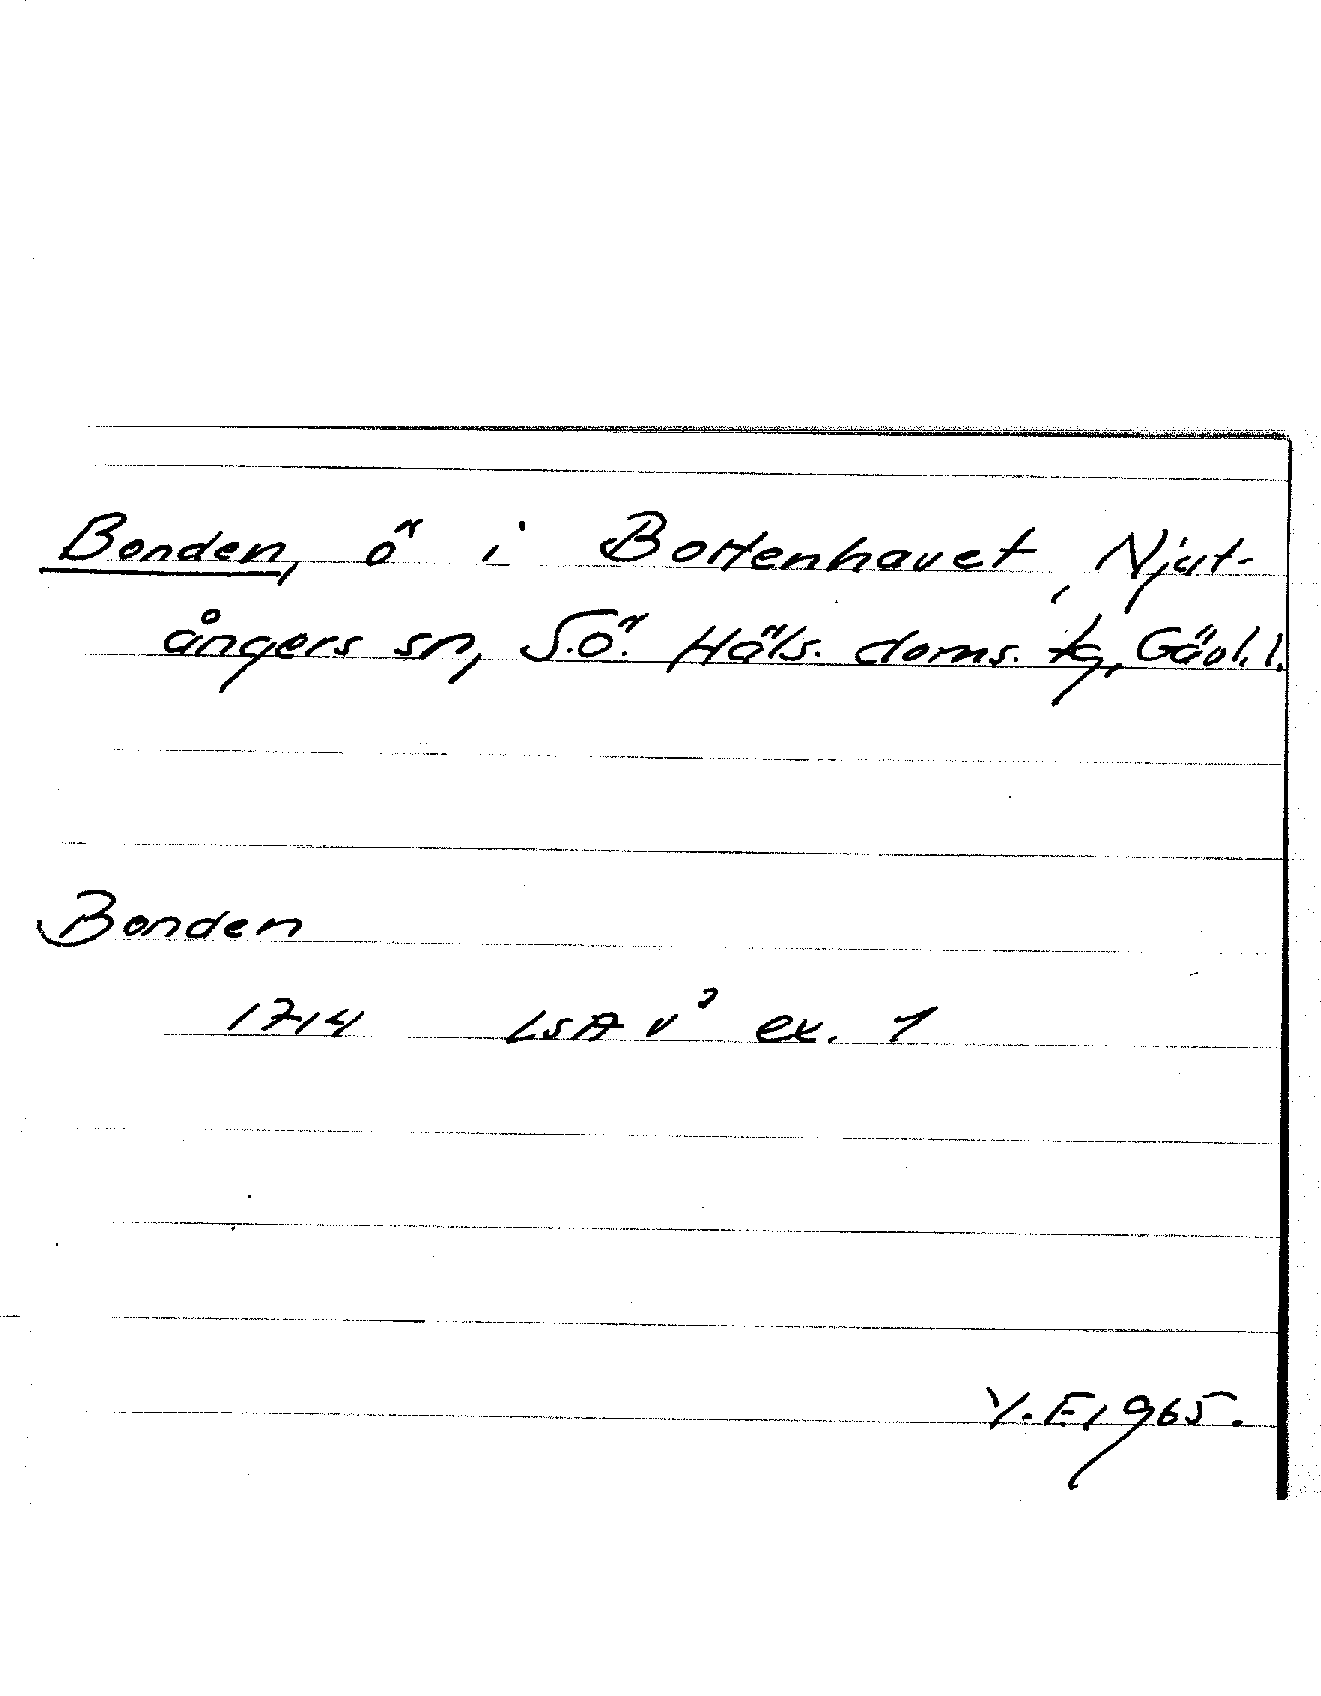 Bonden, ö i Bottenhavet, Njut-
ångers sn, S.Ö. Häls. doms. tg, Gävl. l.
Bonden
1714 LSA v² ex. 1
V.E 1965.